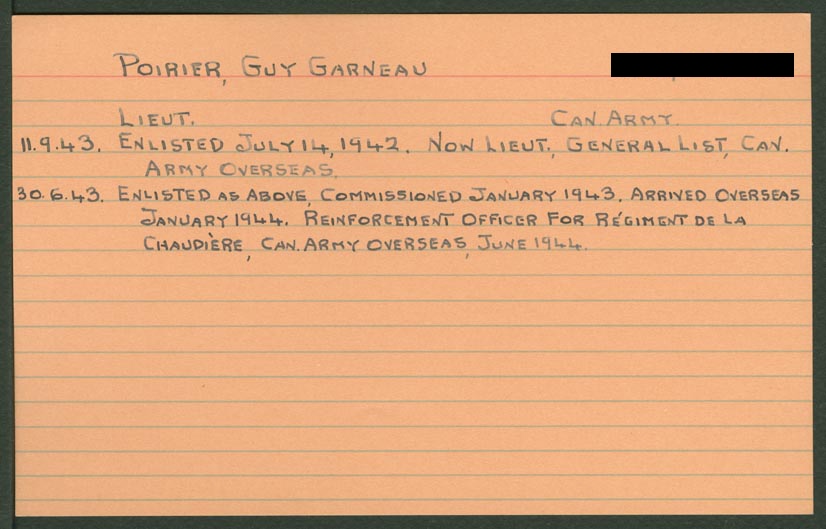 POIRIER, GUY GARNEAU
LIEUT. CAN. ARMY.
11.9.43. ENLISTED JULY 14, 1942. NOW LIEUT., GENERAL LIST, CAN.
ARMY OVERSEAS.
30.6.43. ENLISTED AS ABOVE, COMMISSIONED JANUARY 1943. ARRIVED OVERSEAS
JANUARY 1944. REINFORCEMENT OFFICER FOR RÉGIMENT DE LA
CHAUDIÈRE, CAN. ARMY OVERSEAS, JUNE 1944.